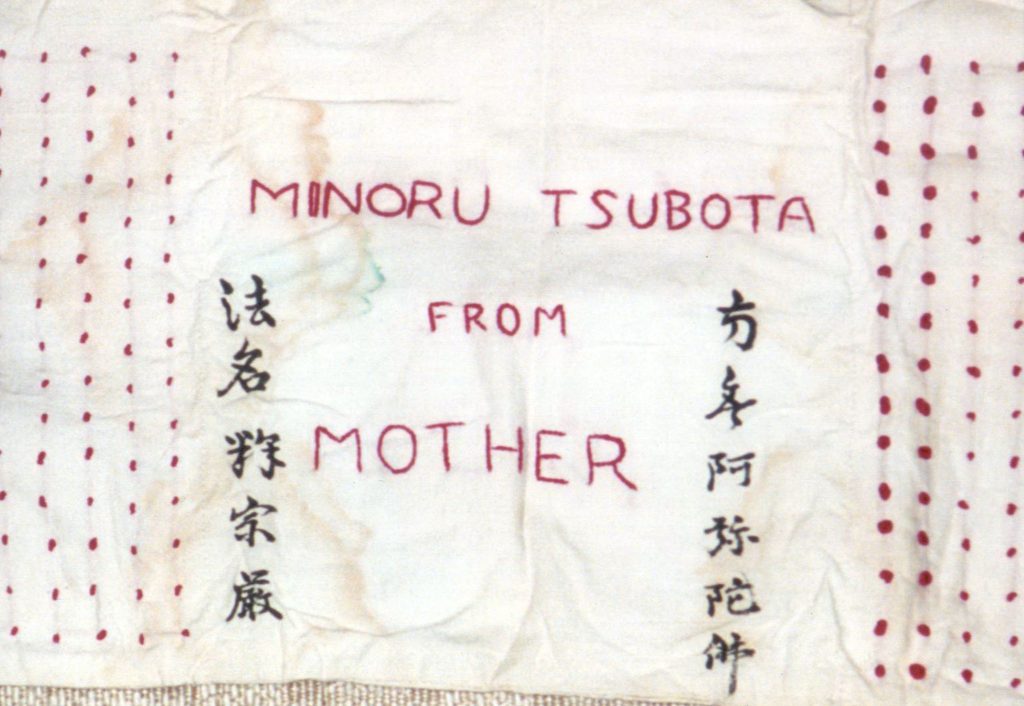 MINORU TSUBOTA
FROM
MOTHER
南無阿弥陀佛
法名釋宗厳